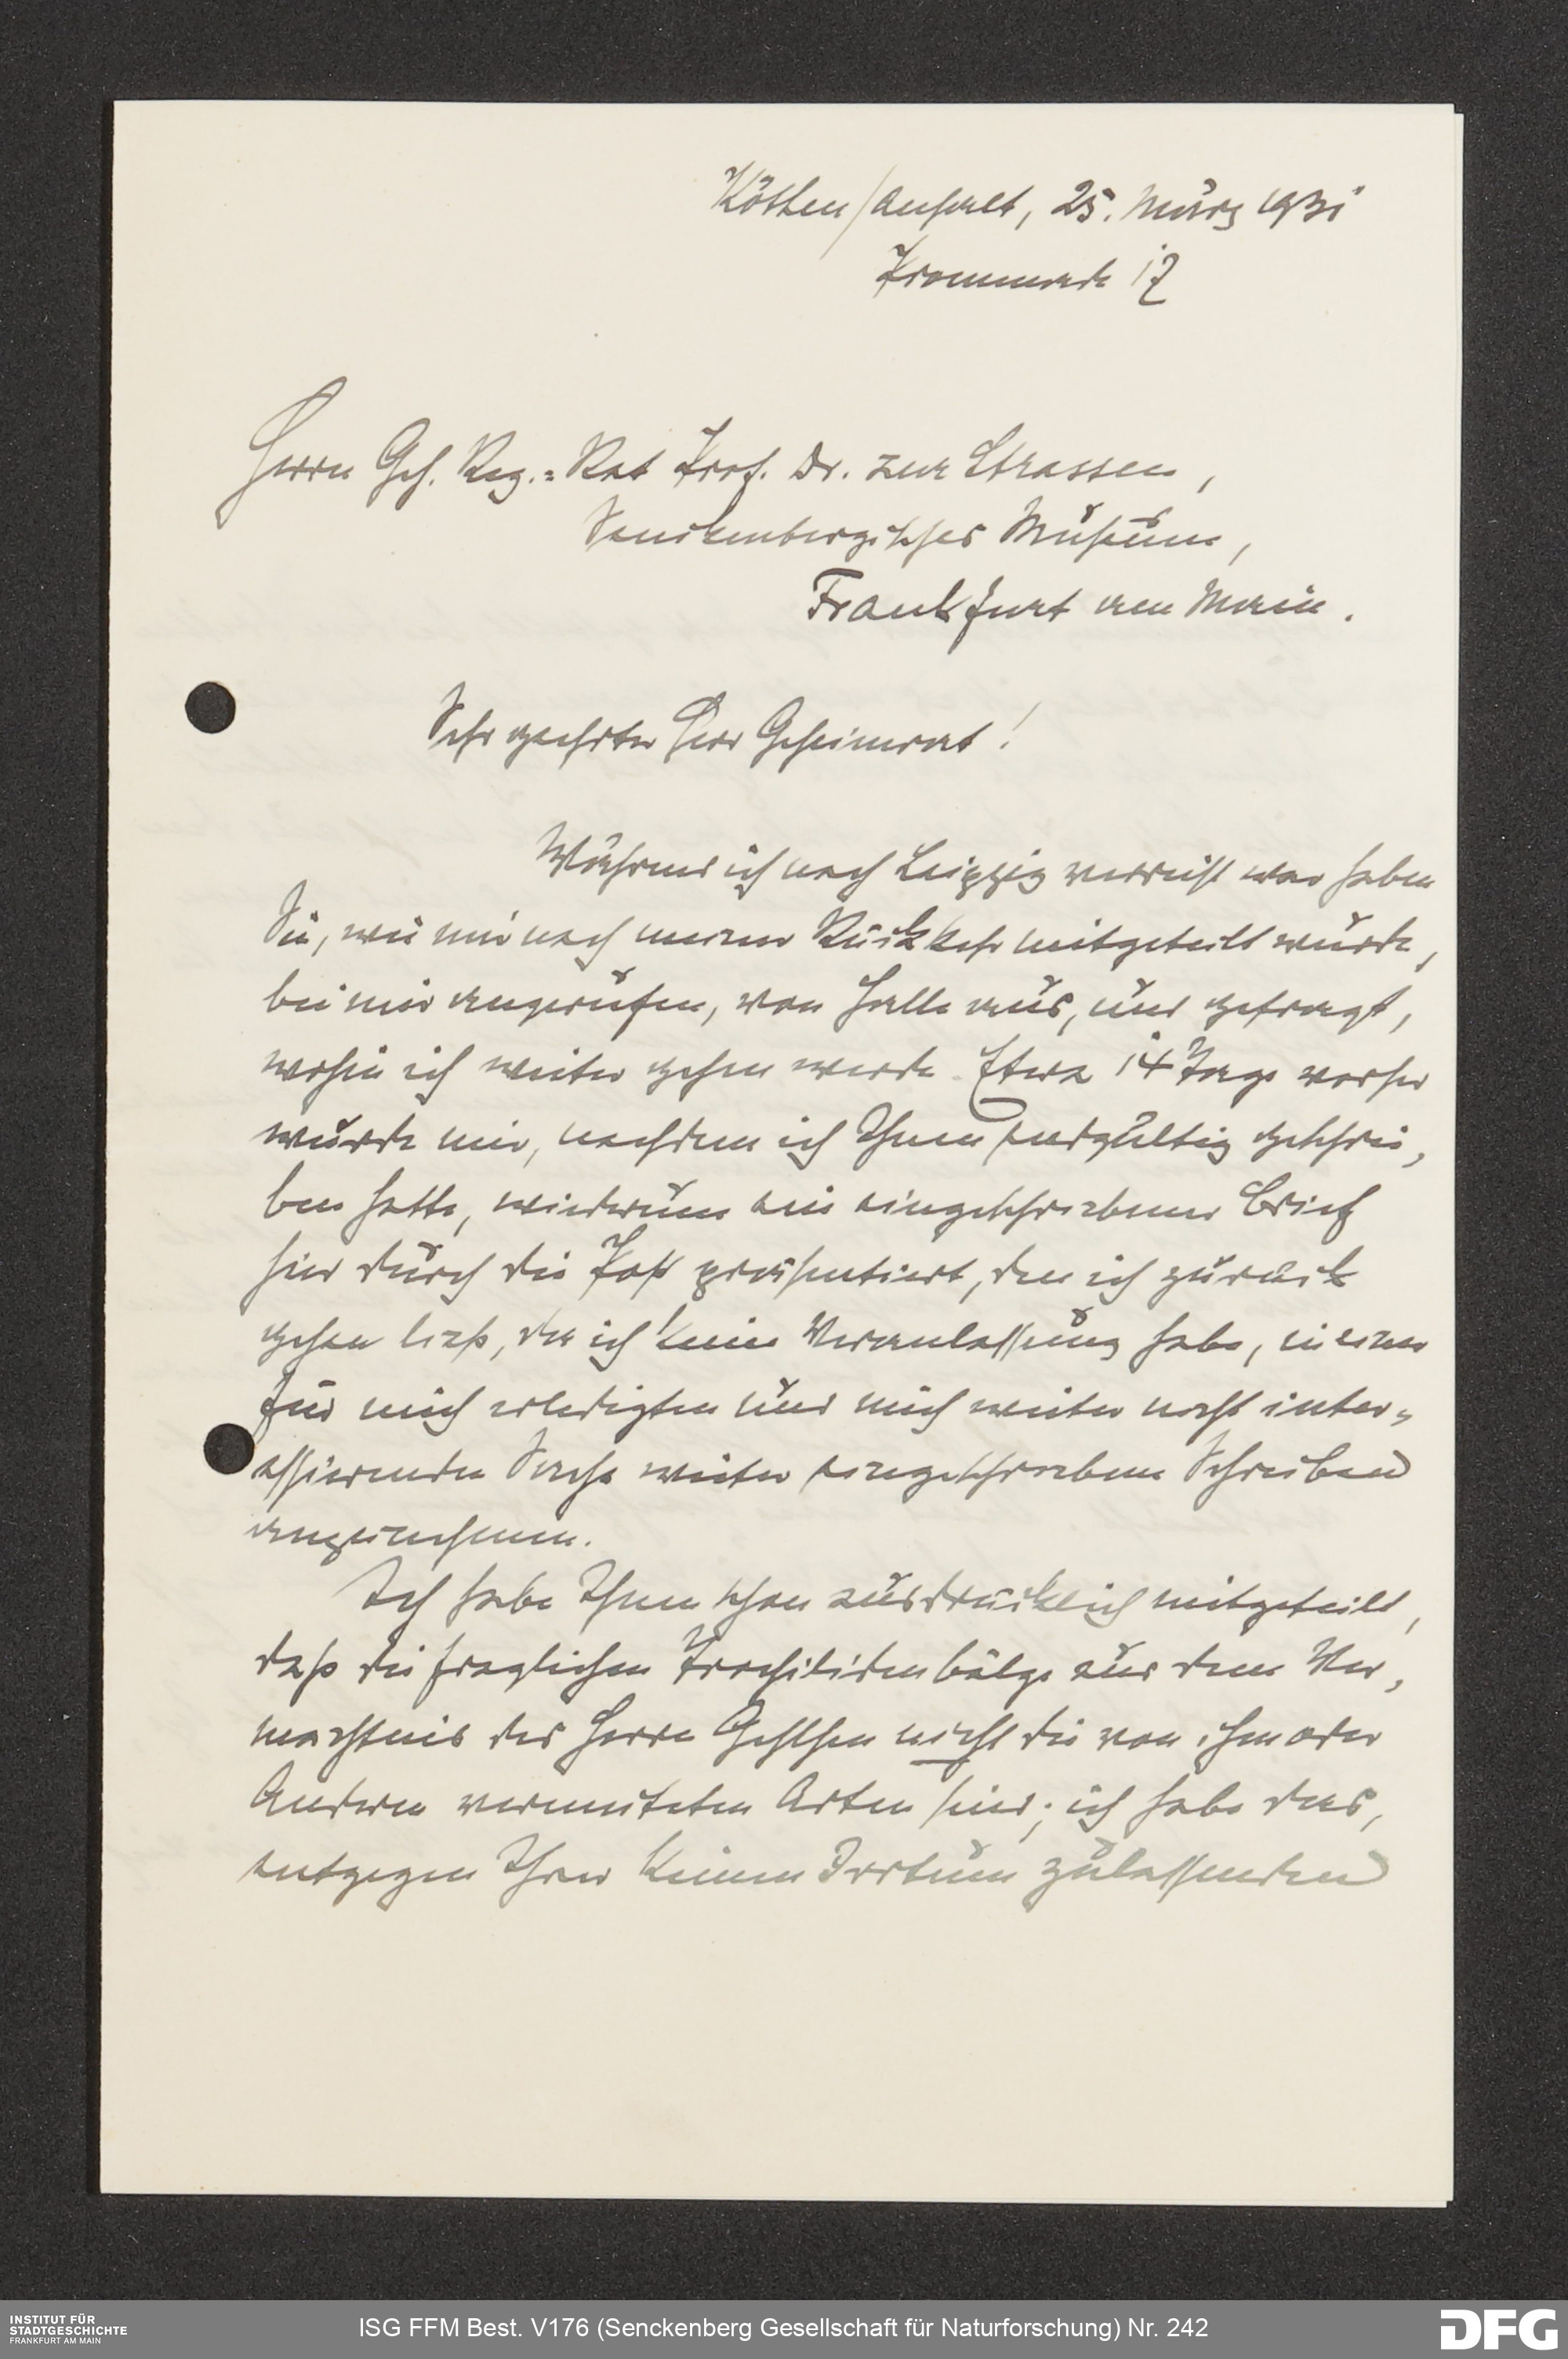 Köthen/Anhalt, 25. März 1931
Promenade 17
Herrn Geh. Reg.=Rat Prof. Dr. zur Strassen,
Senckenbergisches Museum,
Frankfurt am Main.
Sehr geehrter Herr Geheimrat!
Während ich nach Leipzig verreist war haben
Sie, wie mir nach meiner Rückkehr mitgeteilt wurde,
bei mir angerufen, von Halle aus, und gefragt,
wohin ich weiter gehen werde. Etwa 14 Tage vorher
wurde mir, nachdem ich Ihnen endgültig geschrie,
ben hatte, wiederum ein eingeschriebener Brief
hier durch die Post präsentiert, den ich zurück
gehen ließ, da ich keine Veranlassung habe, in einer
für mich erledigten und mich weiter nicht inter=
essierenden Sache weiter eingeschriebene Schreiben
anzunehmen.
Ich habe Ihnen schon ausdrücklich mitgeteilt,
daß die fraglichen Trochilidenbälge aus dem Ver,
mächtnis des Herrn nicht die von ihm oder
Anderen vermuteten Arten sind; ich habe das,
entgegen Ihrer keinen Irrtum zulassenden
INSTITUT FÜR
STADTGESCHICHTE
FRANKFURT AM MAIN
ISG FFM Best. V176 (Senckenberg Gesellschaft für Naturforschung) Nr. 242
DFG